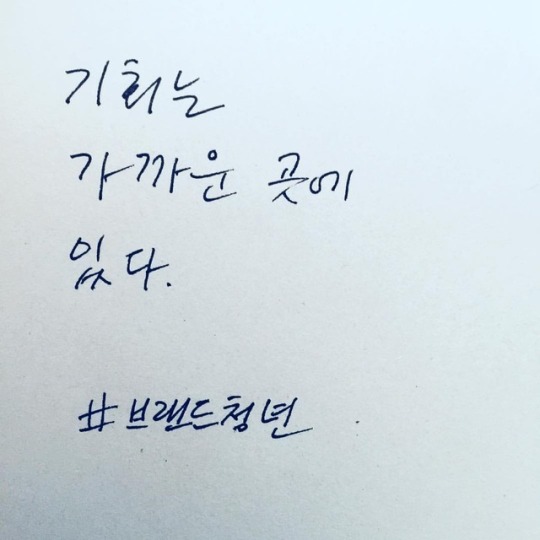 기회는
가까운 곳에
있다.
#브랜드청년